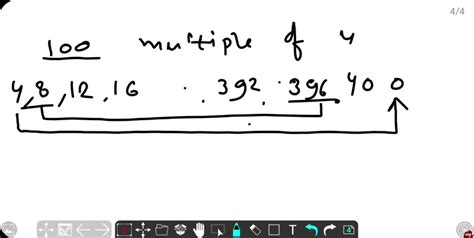 4/4
100 multiple of 4
4,8,12,16 . . 392, .396 400
T 4